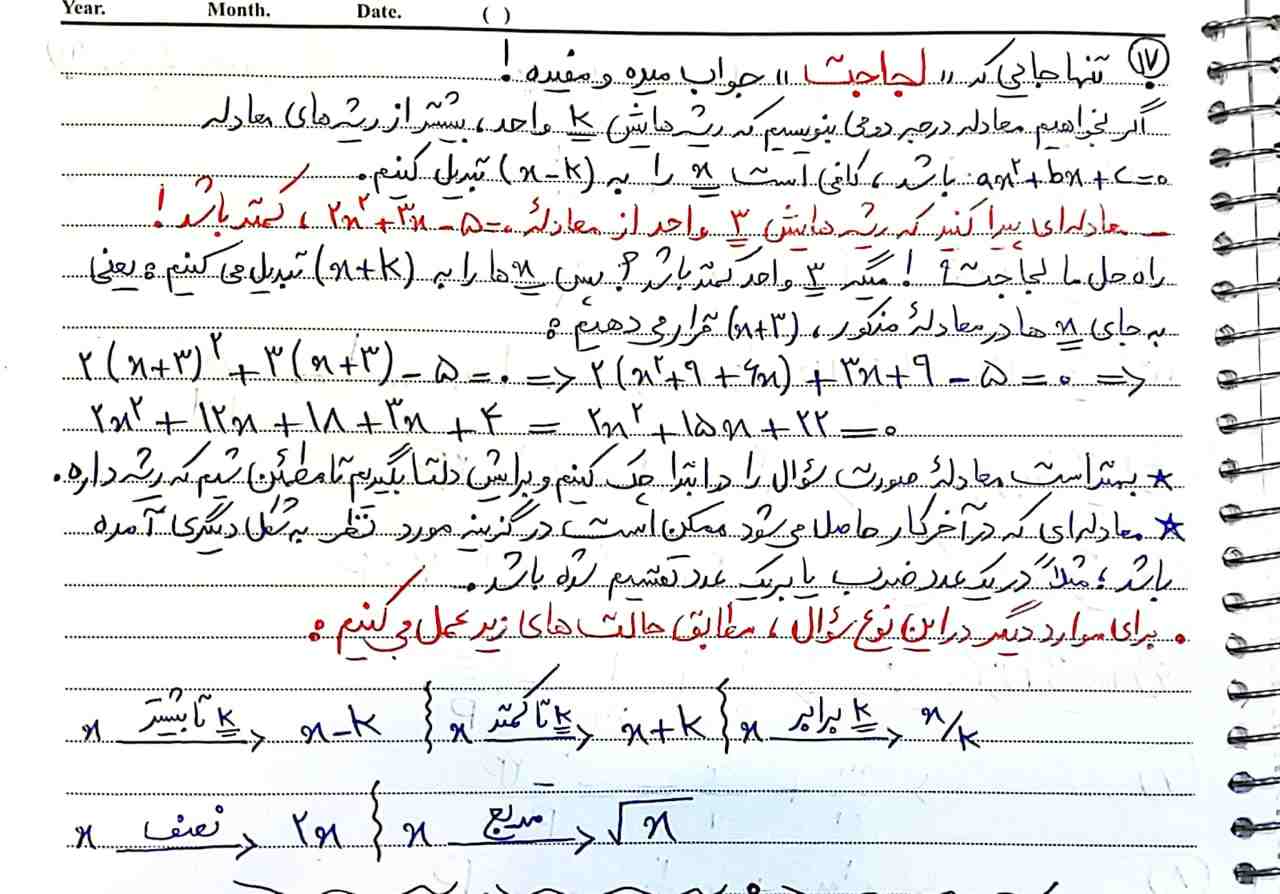 Year. Month. Date. ( )
۱۷ تنها جایی که «لجاجت» جواب میده و مفیده!
اگر بخواهیم معادله درجه دومی بنویسیم که ریشه هایش k واحد، بیشتر از ریشه های معادله
ax²+bx+c=۰ باشد، کافی است x را به (x-k) تبدیل کنیم.
- معادله‌ای پیدا کنید که ریشه هایش ۳ واحد از معادلهٔ ۲x²+۳x-۵=۰، کمتر باشد!
راه حل ما لجاجت؟! میگیر ۳ واحد کمتر باشد؟ پس x ها را به (x+k) تبدیل می کنیم؛ یعنی
به جای x ها در معادلهٔ مذکور، (x+۳) قرار می دهیم:
۲(x+۳)²+۳(x+۳)-۵=۰ => ۲(x²+۹+۶x)+۳x+۹-۵=۰ =>
۲x²+۱۲x+۱۸+۳x+۴ = ۲x²+۱۵x+۲۲=۰
★ بهتر است معادلهٔ صورت سؤال را در ابتدا چک کنیم و برایش دلتا بگیریم تا مطمئن شیم که ریشه داره.
☆ معادله‌ای که در آخر کار حاصل می شود ممکن است در گزینه مورد نظر به شکل دیگری آمده
باشد؛ مثلاً در یک عدد ضرب یا بر یک عدد تقسیم شده باشد.
• برای موارد دیگر در این نوع سؤال، مطابق حالت های زیر عمل می کنیم:
x k تا بیشتر → x-k { x k تا کمتر → x+k { x k برابر → x/k
x نصف → ۲x { x مربع → √x